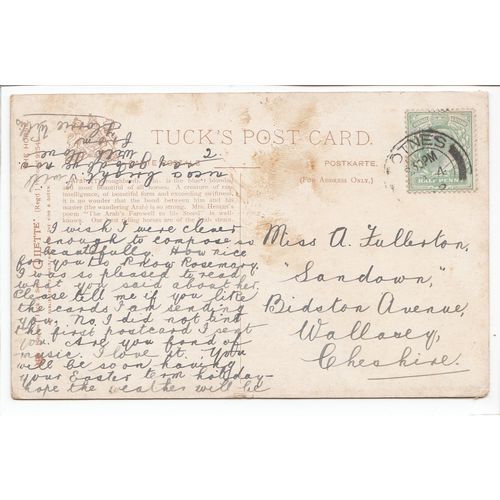 TUCK'S POST CARD.
CARTE POSTALE
POSTKARTE.
(FOR ADDRESS ONLY.)
TNES
PM
HALF PENNY
and most beautiful of all horses. A creature of
intelligence, of beautiful form and exceeding swiftness,
it is no wonder that the bond between him and his
master (the wandering Arab) is so strong. Mrs. Heman's
poem "The Arab's Farewell to his Steed" is well-
known. Our best riding horses are of the
I wish I were clever
enough to compose as
beautifully. How nice
for you to know Rosemary.
I was so pleased to read
what you said about her.
Please tell me if you like
the cards I am sending
you. No, I did not tint
the first postcard I sent
you. Are you fond of
music. I love it. You
will be soon having
your Easter term holiday-
hope the weather will be
2.
with love
from
Miss A. Fullerton,
"Sandown,"
Bidston Avenue,
Wallasey,
Cheshire.